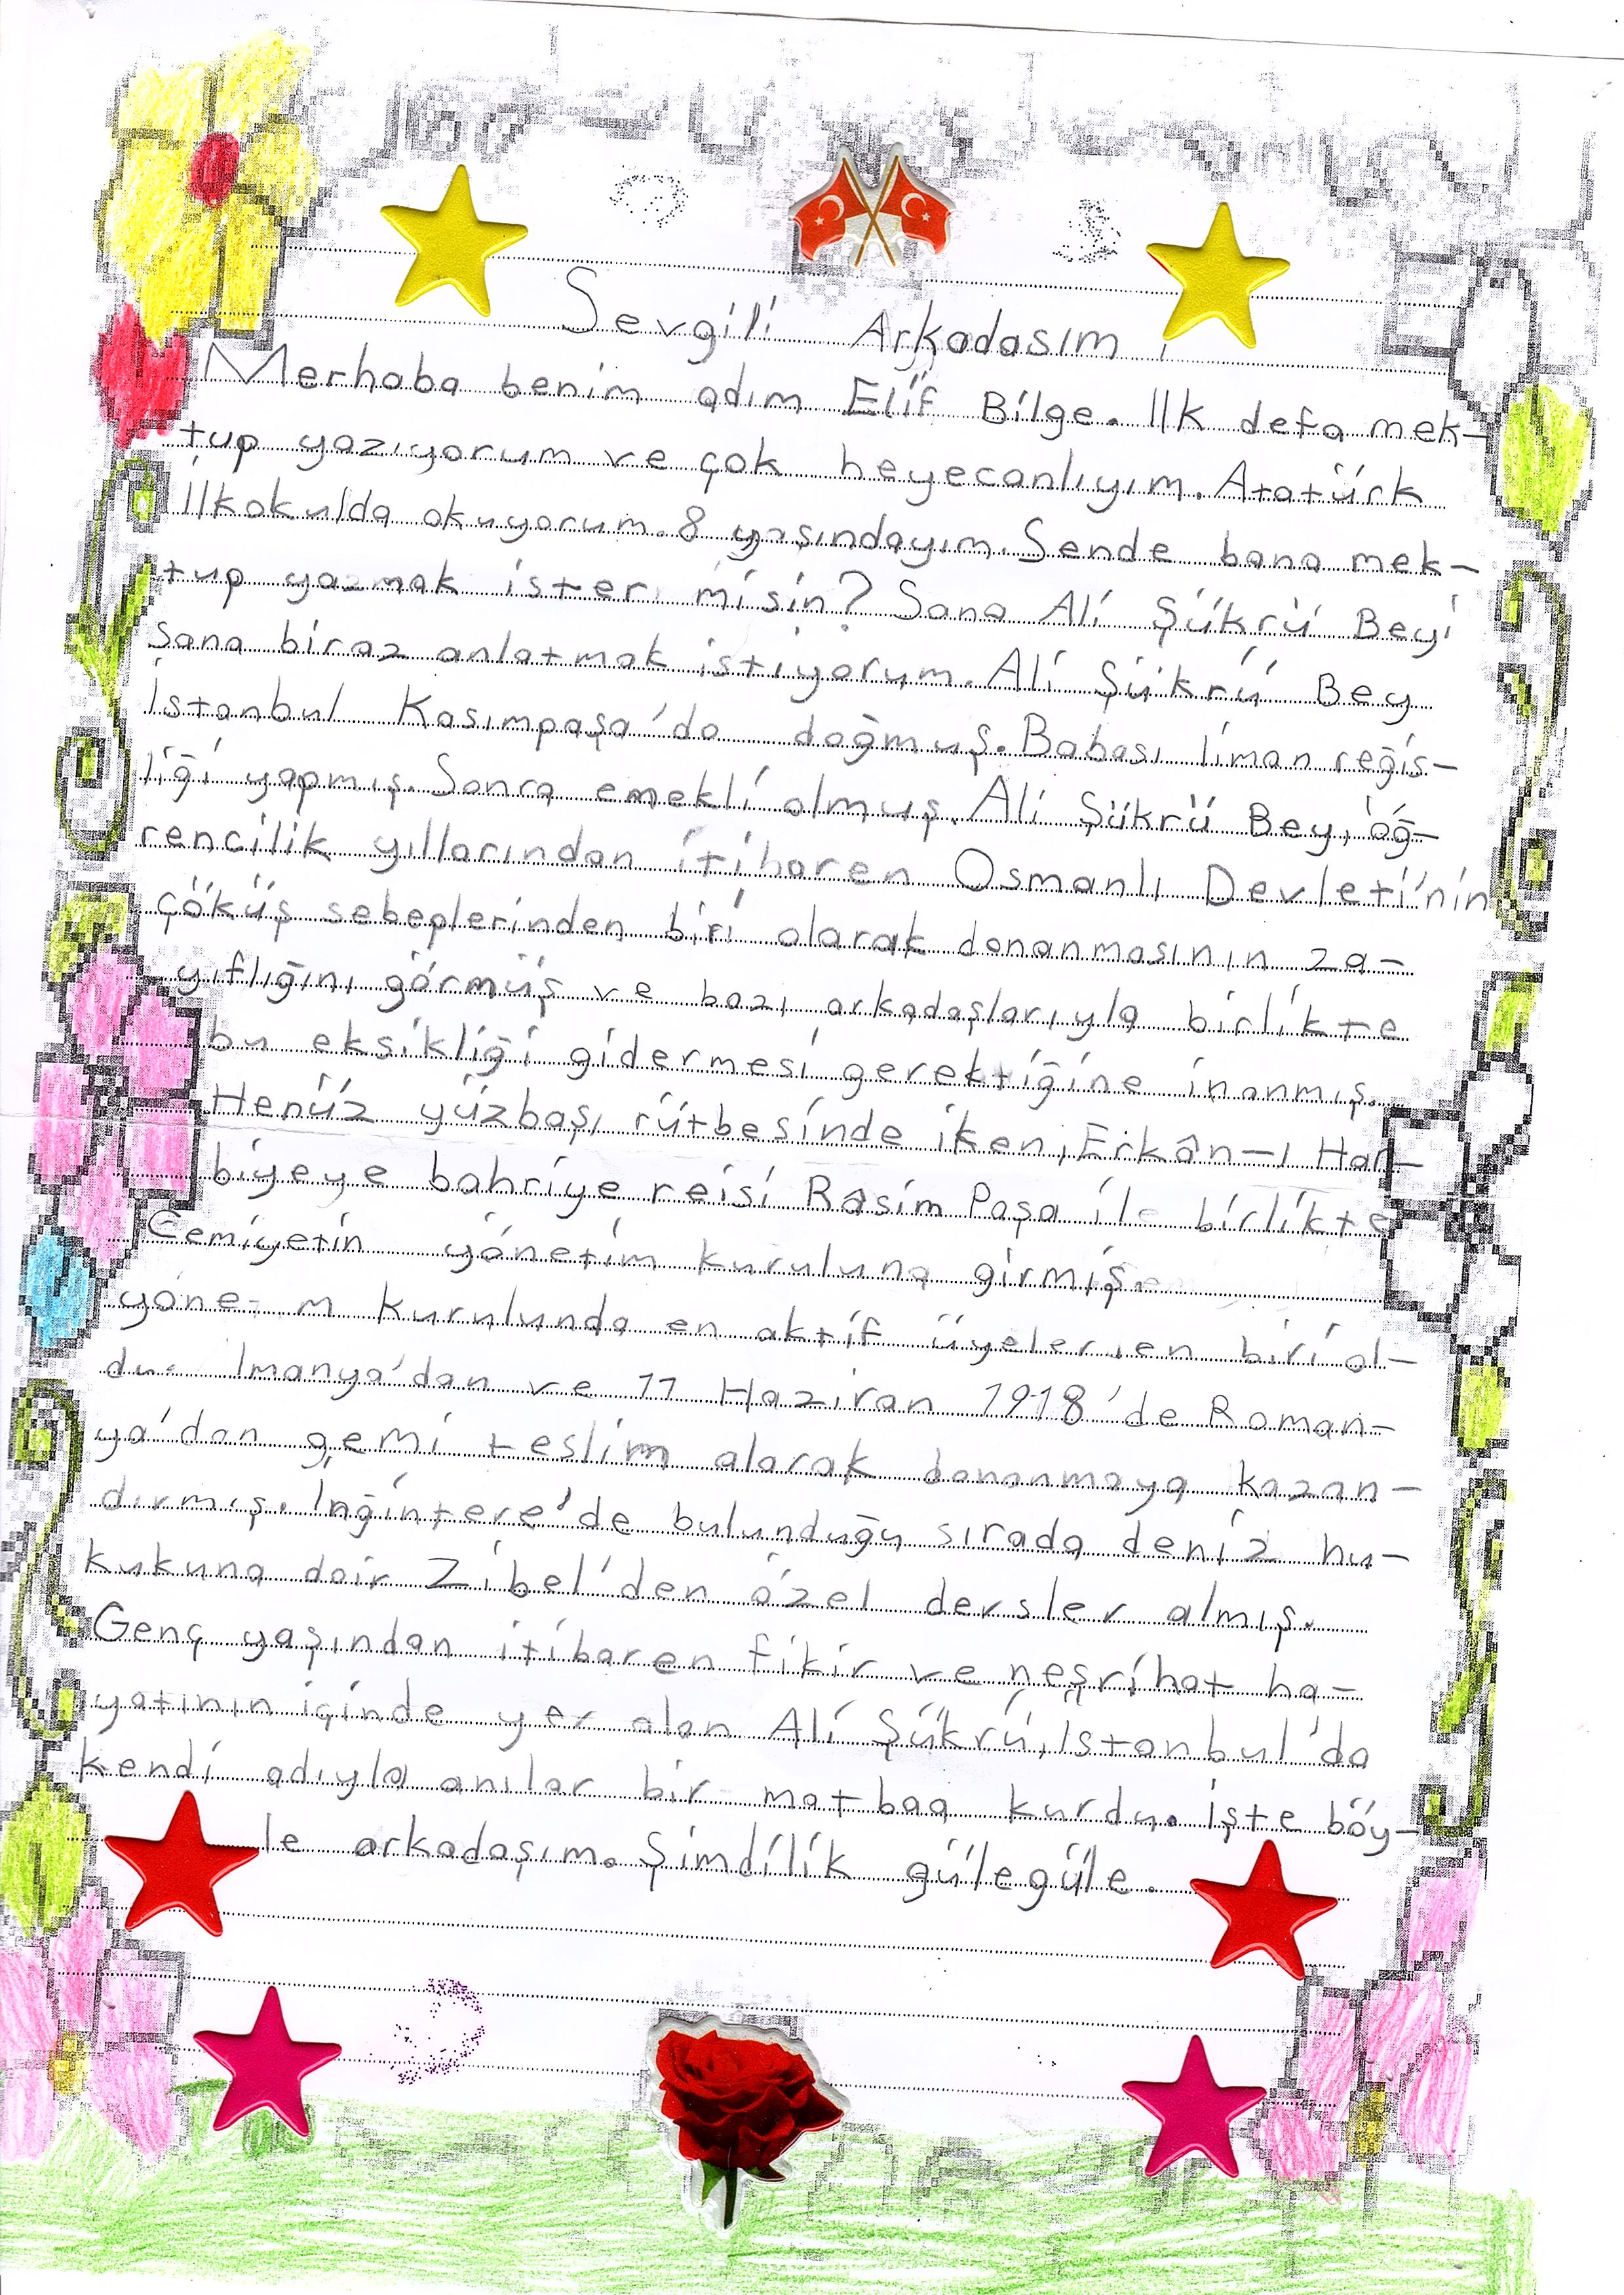 Sevgili Arkadasım,
Merhaba benim adım Elif Bilge. Ilk defa mek-
tup yazıyorum ve çok heyecanlıyım. Atatürk
İlkokulda okuyorum. 8 yaşındayım. Sende bana mek-
tup yazmak ister misin? Sana Ali Şükrü Beyi
sana biraz anlatmak istiyorum. Ali Şükrü Bey
İstanbul Kasımpaşa'da doğmuş. Babası liman reğis-
liği yapmış. Sonra emekli olmuş. Ali Şükrü Bey, öğ-
rencilik yıllarından itibaren Osmanlı Devleti'nin
çöküş sebeplerinden biri olarak donanmasının za-
yıflığını görmüş ve bazı arkadaşlarıyla birlikte
bu eksikliği gidermesi gerektiğine inanmış.
Henüz yüzbaşı rütbesinde iken, Erkân-ı Har-
biyeye bahriye reisi Rasim Paşa ile birlikte
Cemiyetin yönetim kuruluna girmiş.
yöne m kurulunda en aktif üyeler en biri ol-
du. lmanya'dan ve 11 Haziran 1918'de Roman-
ya'dan gemi teslim alarak donanmaya kazan-
dırmış. Inğintere'de bulunduğu sırada deniz hu-
kukuna dair Zibel'den özel dersler almış.
Genç yaşından itibaren fikir ve neşrihat ha-
yatının içinde yer alan Ali Şükrü, Istanbul'da
kendi adıyla anılar bir matbaa kurdu. işte böy-
le arkadaşım. Şimdilik gülegüle.